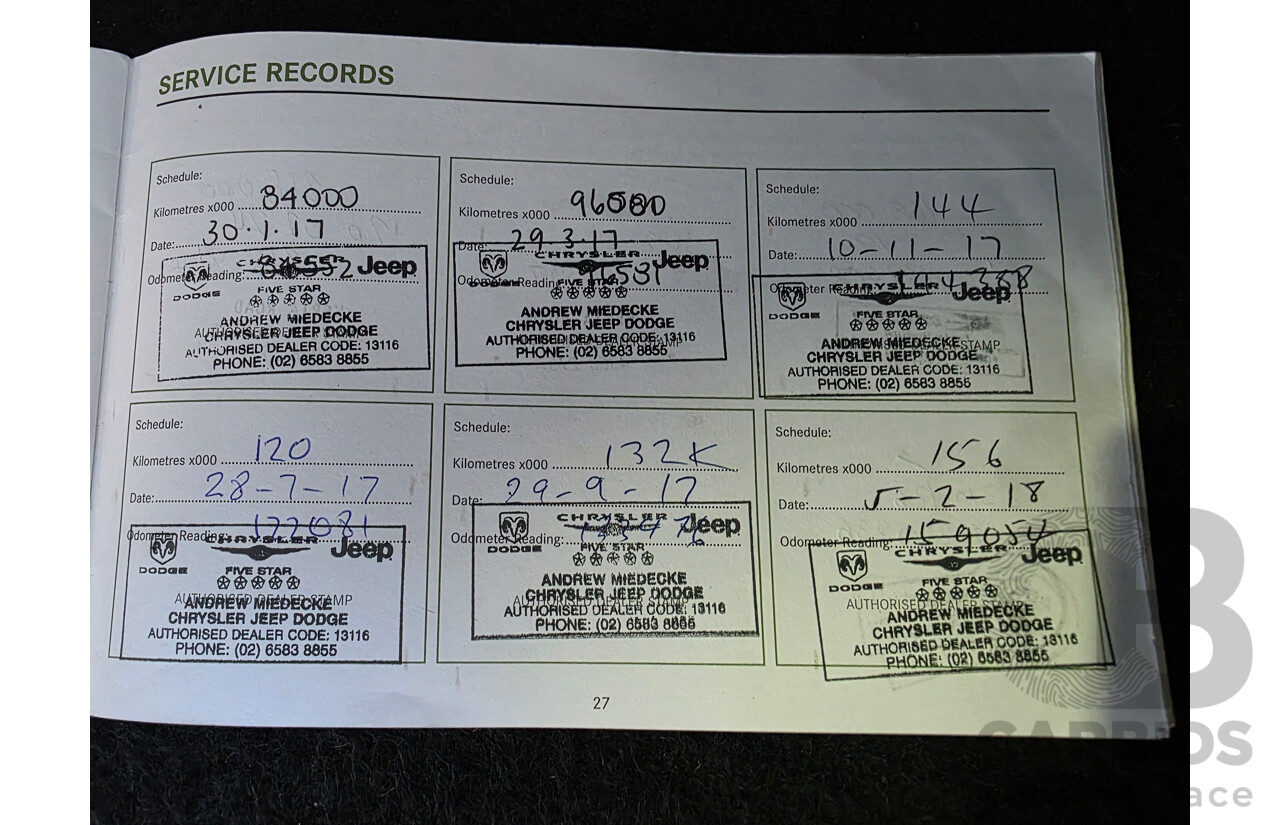 SERVICE RECORDS
Schedule:
Kilometres x000 84000
Date: 30.1.17
Odometer Reading:
CHRYSLER Jeep
DODGE
FIVE STAR
ANDREW MIEDECKE
CHRYSLER JEEP DODGE
AUTHORISED DEALER CODE: 13116
PHONE: (02) 6583 8855
Schedule:
Kilometres x000 96000
Date: 29.3.17
Odometer Reading: 96531
CHRYSLER Jeep
FIVE STAR
ANDREW MIEDECKE
CHRYSLER JEEP DODGE
AUTHORISED DEALER CODE: 13116
PHONE: (02) 6583 8855
Schedule:
Kilometres x000 144
Date: 10-11-17
Odometer Reading: 144388
CHRYSLER Jeep
DODGE
FIVE STAR
STAMP
ANDREW MIEDECKE
CHRYSLER JEEP DODGE
AUTHORISED DEALER CODE: 13116
PHONE: (02) 6583 8855
Schedule:
Kilometres x000 120
Date: 28-7-17
Odometer Reading: 122081
CHRYSLER Jeep
DODGE
FIVE STAR
AUTHORISED DEALER STAMP
ANDREW MIEDECKE
CHRYSLER JEEP DODGE
AUTHORISED DEALER CODE: 13116
PHONE: (02) 6583 8855
Schedule:
Kilometres x000 132K
Date: 29-9-17
Odometer Reading:
CHRYSLER Jeep
DODGE
FIVE STAR
ANDREW MIEDECKE
CHRYSLER JEEP DODGE
AUTHORISED DEALER CODE: 13116
PHONE: (02) 6583 8855
Schedule:
Kilometres x000 156
Date: 5-2-18
Odometer Reading: 159054
CHRYSLER Jeep
DODGE
FIVE STAR
AUTHORISED DEALER
ANDREW MIEDECKE
CHRYSLER JEEP DODGE
AUTHORISED DEALER CODE: 13116
PHONE: (02) 6583 8855
27